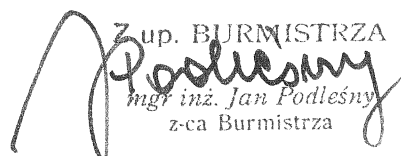 Z up. BURMISTRZA
Podleśny
mgr inż. Jan Podleśny
z-ca Burmistrza